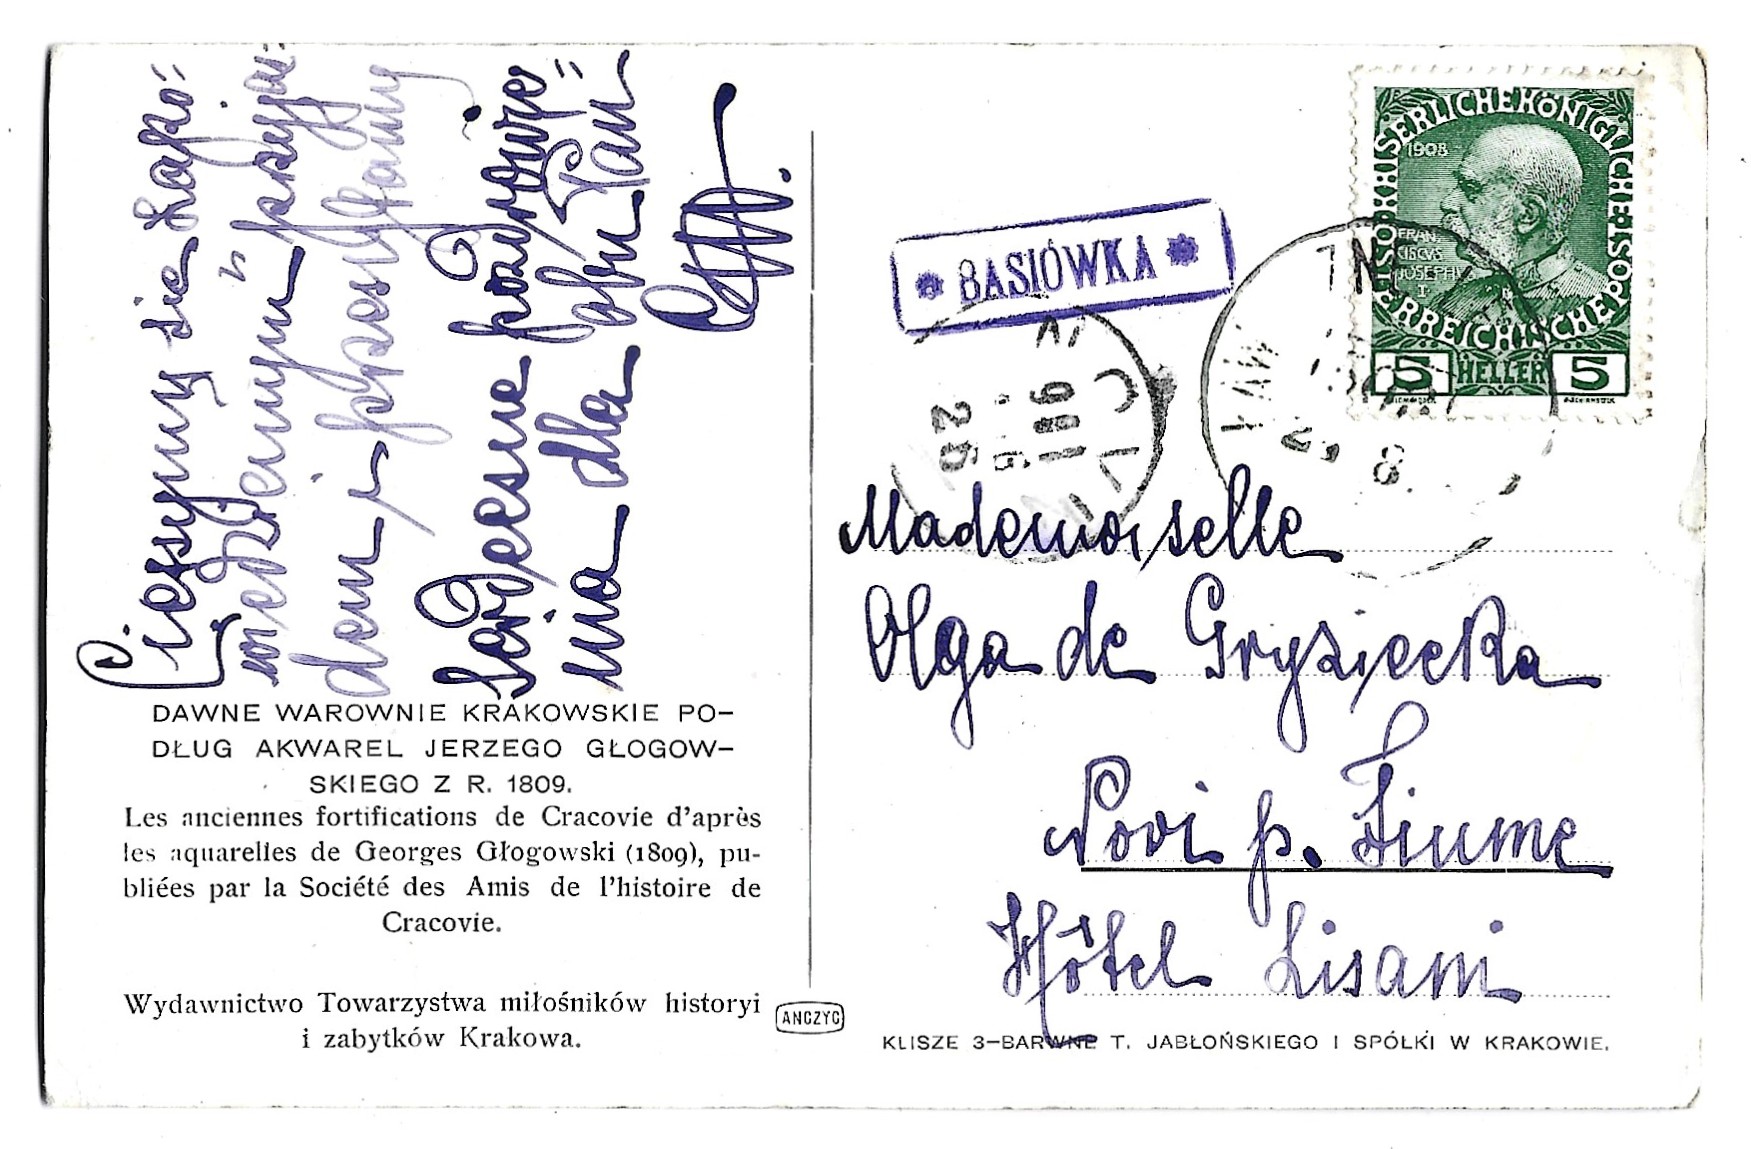 Cieszymy się zapo=
wiedzianym przyja=
dem i przesyłamy
serdeczne pozdrowie=
nia dla obu Pań
DAWNE WAROWNIE KRAKOWSKIE PO-
DŁUG AKWAREL JERZEGO GŁOGOW-
SKIEGO Z R. 1809.
Les anciennes fortifications de Cracovie d'après
les aquarelles de Georges Głogowski (1809), pu-
bliées par la Société des Amis de l'histoire de
Cracovie.
Wydawnictwo Towarzystwa miłośników historyi
i zabytków Krakowa.
ANCZYC
KAISERLICHE KÖNIGLICHE ÖSTERREICHISCHE POST
1908
FRAN
CISCVS
JOSEPH
I
5 HELLER 5
* BASIÓWKA *
Mademoiselle
Olga de Gryziecka
Novi p. Fiume
Hôtel Lisani
KLISZE 3-BARWNE T. JABŁOŃSKIEGO I SPÓŁKI W KRAKOWIE.